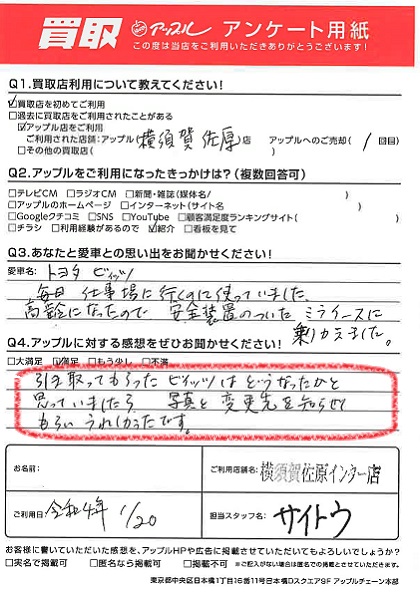 買取 アップル アンケート用紙
この度は当店をご利用いただきありがとうございます!
Q1.買取店利用について教えてください!
☑買取店を初めてご利用
□過去に買取店をご利用されたことがある
☑アップル店をご利用
ご利用された店舗:アップル(横須賀佐原)店 アップルへのご売却(1回目)
□その他の買取店( )
Q2.アップルをご利用になったきっかけは?(複数回答可)
□テレビCM □ラジオCM □新聞・雑誌(媒体名/ )
□アップルのホームページ □インターネット(サイト名 )
□Googleクチコミ □SNS □YouTube □顧客満足度ランキングサイト( )
□チラシ □利用経験があるので ☑紹介 □看板を見て
Q3.あなたと愛車との思い出をお聞かせください!
愛車名:トヨタ ビィッツ
毎日 仕事場に行くのに使っていました。
高齢になったので 安全装置のついた ミライースに
乗りかえました。
Q4.アップルに対する感想をぜひお聞かせください!
□大満足 ☑満足 □もう少し □不満
引き取ってもらった ビィッツは どうなったかと
思っていましたら 写真と 変更先を知らせて
もらい うれしかったです。
お名前:
ご利用店舗名:横須賀佐原インター店
ご利用日:令和4年 1/20
担当スタッフ名:サイトウ
お客様に書いていただいた感想を、アップルHPや広告に掲載させていただいてもよろしいでしょうか?
□実名で掲載可 □匿名なら掲載可 □掲載不可 ※ご記入がない場合は匿名での掲載とさせていただきます。
東京都中央区日本橋1丁目16番11号日本橋Dスクエア9F アップルチェーン本部